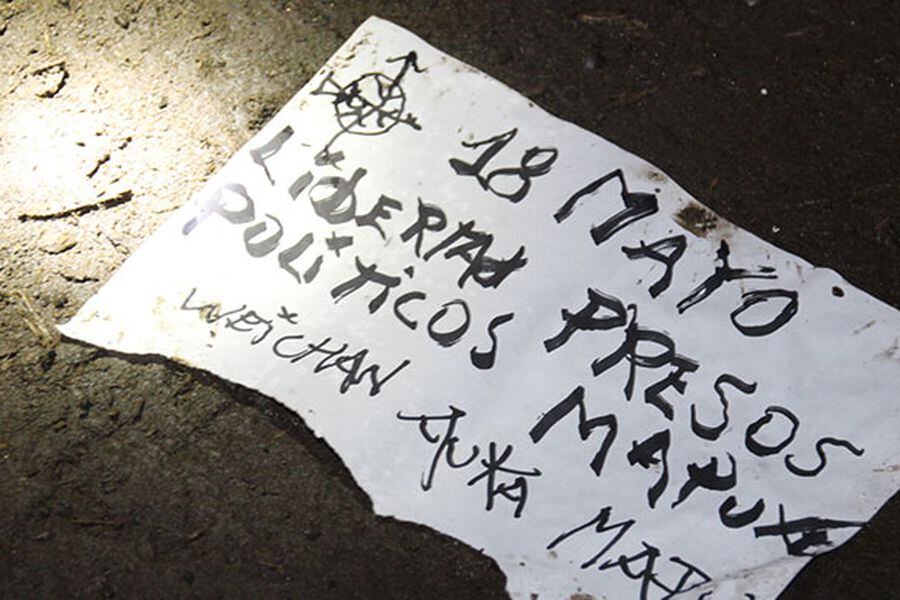 18 MAYO
LIBERTAD PRESOS
POLITICOS MAPUCHE
WEICHAN AUKA